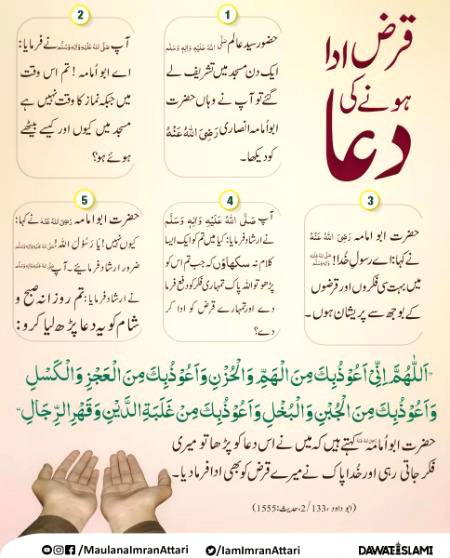 قرض ادا
ہونے کی
دعا
1
حضور سید عالم صَلَّی اللہُ عَلَیْہِ وَاٰلِہٖ وَسَلَّم
ایک دن مسجد میں تشریف لے
گئے تو آپ نے وہاں حضرت
ابو اُمامہ انصاری رَضِیَ اللہُ عَنْہُ
کو دیکھا۔
2
آپ صَلَّی اللہُ عَلَیْہِ وَاٰلِہٖ وَسَلَّم نے فرمایا:
اے ابو اُمامہ! تم اس وقت
میں جبکہ نماز کا وقت نہیں ہے
مسجد میں کیوں اور کیسے بیٹھے
ہوئے ہو؟
3
حضرت ابو امامہ رَضِیَ اللہُ عَنْہُ
نے کہا: اے رسولِ خُدا!
میں بہت سی فکروں اور قرضوں
کے بوجھ سے پریشان ہوں۔
4
آپ صَلَّی اللہُ عَلَیْہِ وَاٰلِہٖ وَسَلَّم
نے ارشاد فرمایا: کیا میں تم کو ایک ایسا
کلام نہ سکھاؤں کہ جب تم اس کو
پڑھو تو اللہ پاک تمہاری فکر کو دفع فرما
دے اور تمہارے قرض کو ادا کر
دے؟
5
حضرت ابو امامہ رَضِیَ اللہُ عَنْہُ نے کہا:
کیوں نہیں! یَا رَسُوْلَ اللہ!
ضرور ارشاد فرمایئے۔ آپ
نے ارشاد فرمایا: تم روزانہ صبح و
شام کو یہ دعا پڑھ لیا کرو:
"اَللّٰهُمَّ اِنِّیْ اَعُوْذُبِكَ مِنَ الْهَمِّ وَالْحُزْنِ وَاَعُوْذُبِكَ مِنَ الْعَجْزِ وَالْكَسْلِ
وَاَعُوْذُبِكَ مِنَ الْجُبْنِ وَالْبُخْلِ وَاَعُوْذُبِكَ مِنْ غَلَبَةِ الدَّيْنِ وَقَهْرِ الرِّجَالِ"
حضرت ابو اُمامہ کہتے ہیں کہ میں نے اس دعا کو پڑھا تو میری
فکر جاتی رہی اور خُدا پاک نے میرے قرض کو بھی ادا فرما دیا۔
(ابو داود، 2/133، حدیث:1555)
/MaulanaImranAttari
/IamImranAttari
DAWATEISLAMI